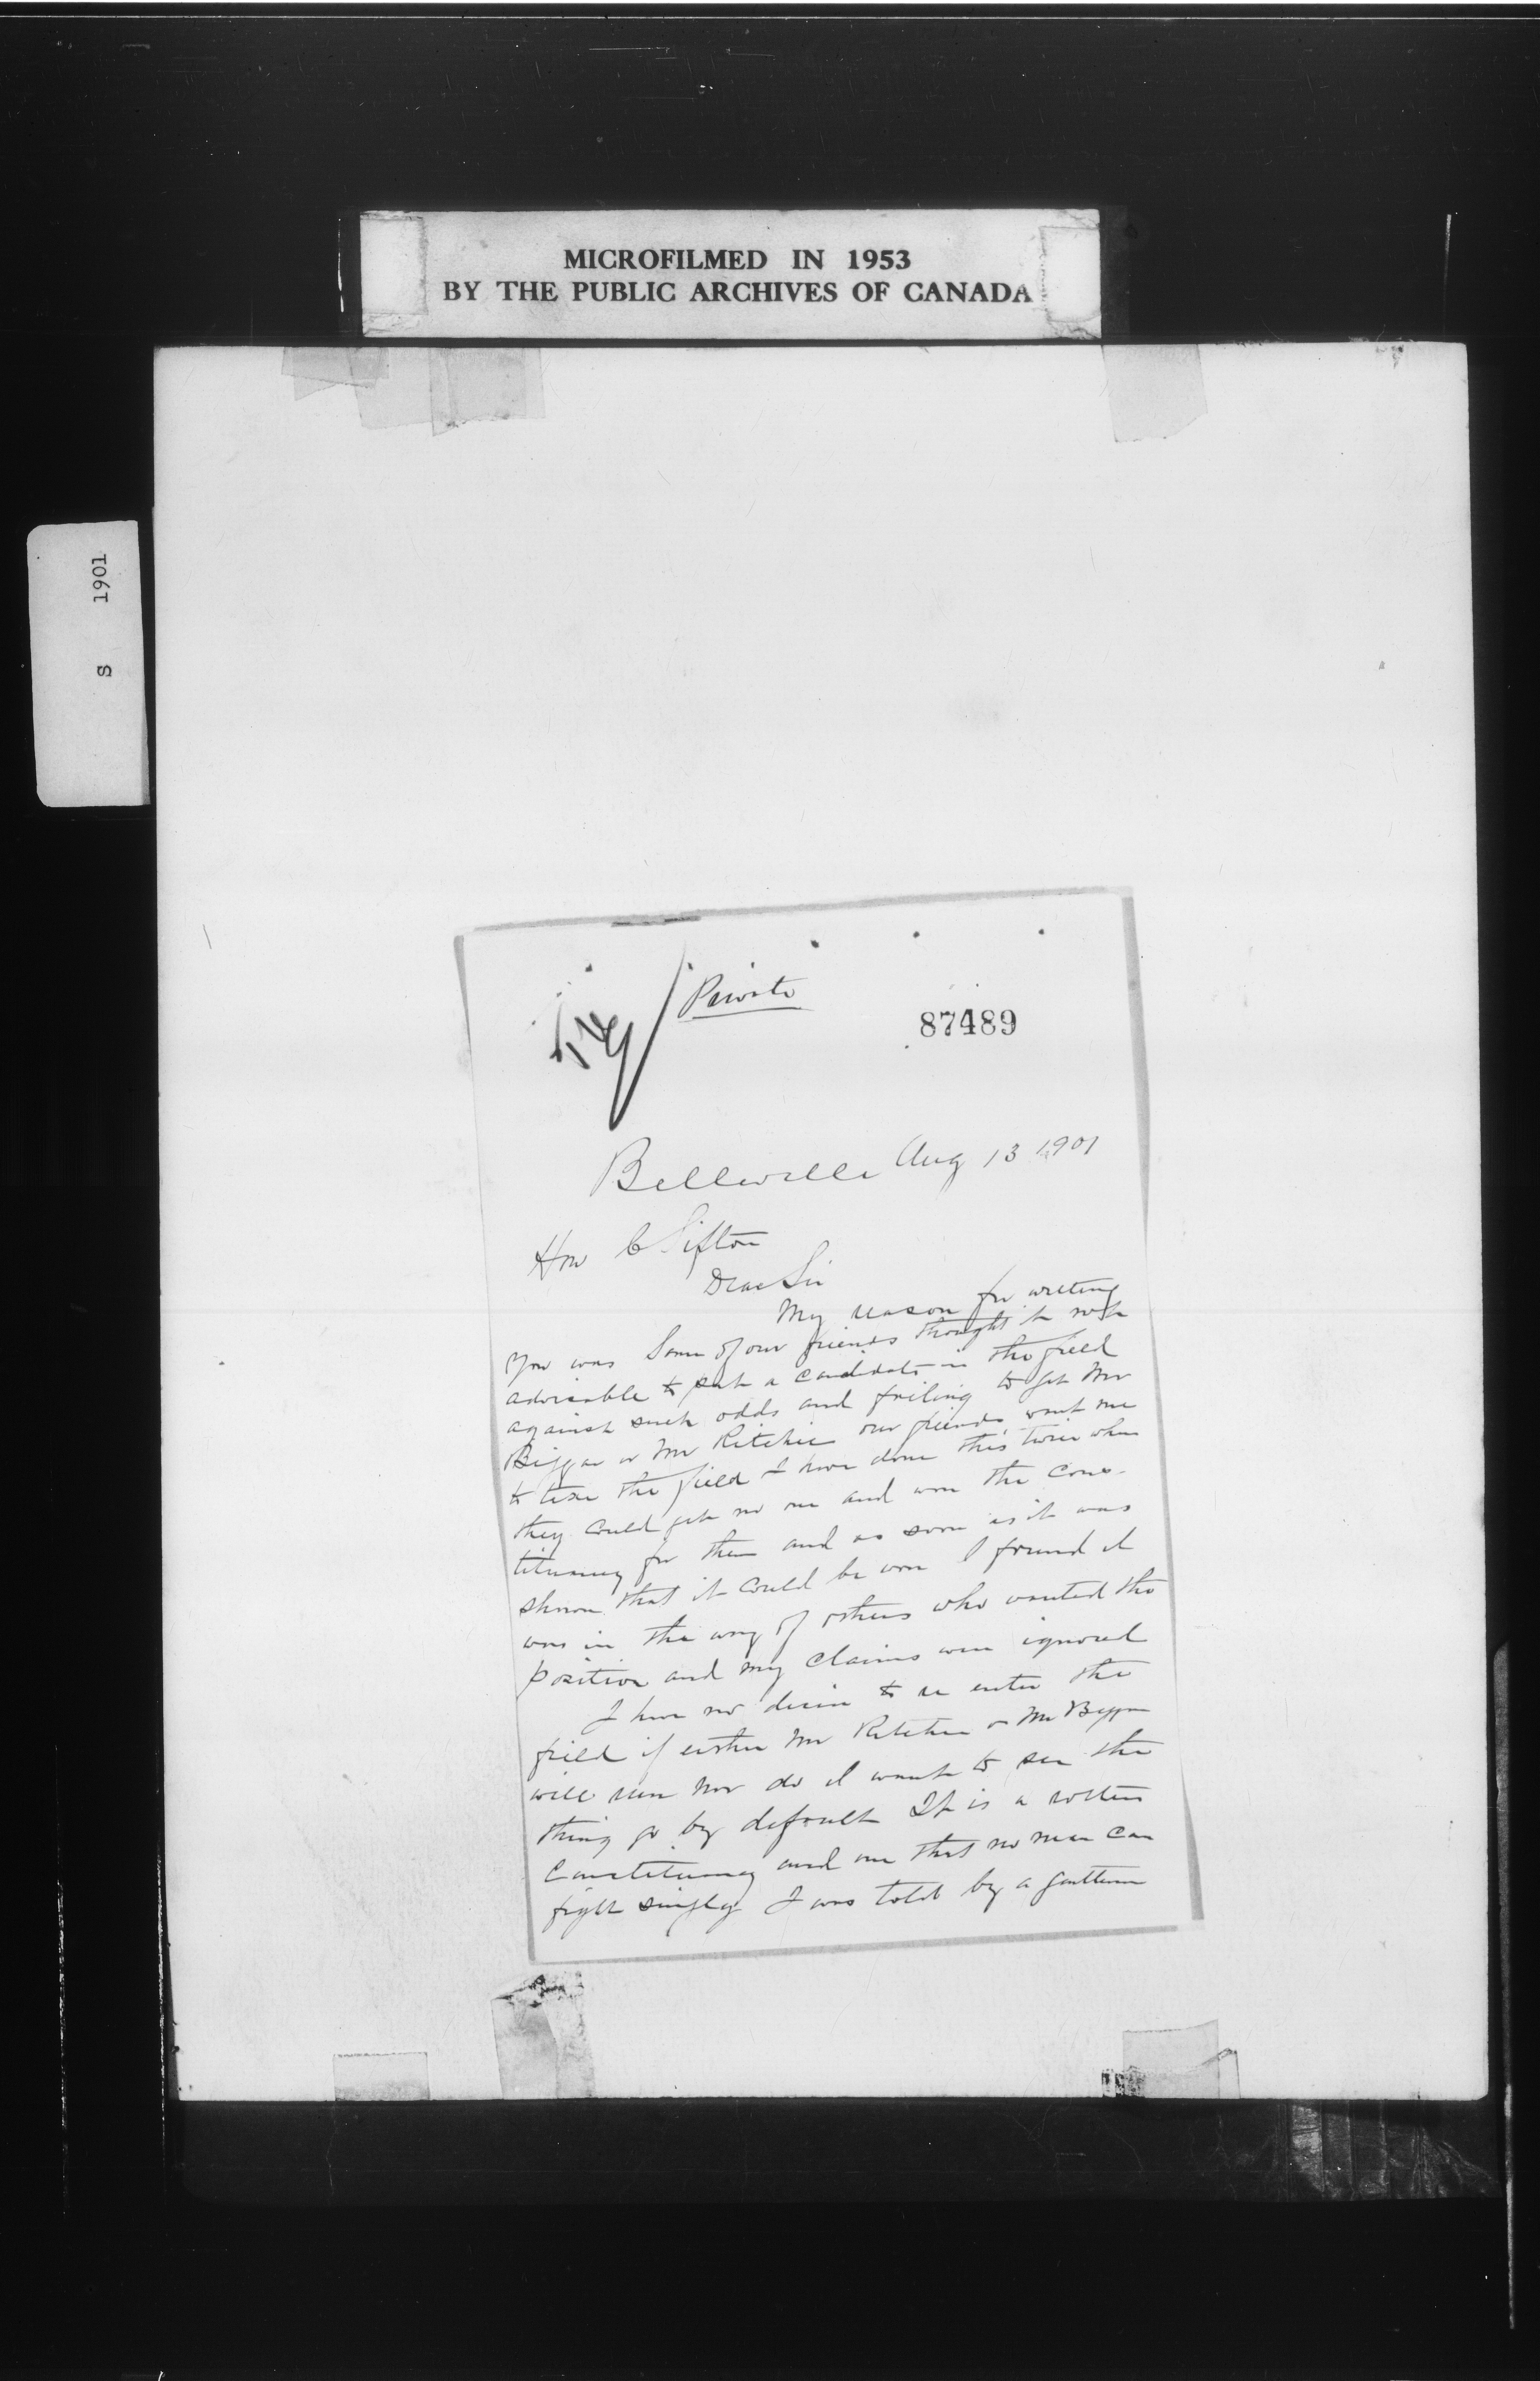 MICROFILMED IN 1953
BY THE PUBLIC ARCHIVES OF CANADA
S 1901
Private
87489
Belleville Aug 13 1901
Hon C Sifton
Dear Sir
My reason for writing
you was Some of our friends thought it not
advisable to put a candidate in the field
against such odds and failing to get Mr
Biggar or Mr Ritchie our friends want me
to take the field I have done this twice when
they could get no one and won the cons-
tituency for them and as soon as it was
shown that it could be won I found I
was in the way of others who wanted the
position and my claims were ignored
I have no desire to re enter the
field if either Mr Ritchie or Mr Biggar
will run nor do I want to see the
thing go by default It is a rotten
Constituency and one that no man can
fight singly I was told by a gentleman